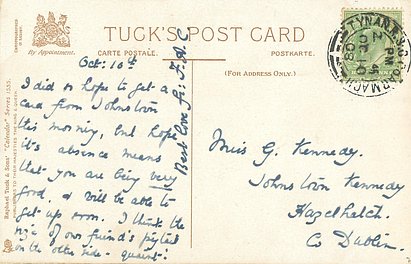 TUCK'S POST CARD
By Appointment.
CARTE POSTALE.
POSTKARTE.
(FOR ADDRESS ONLY.)
TYNAN
Oct: 10th
I did so hope to get a
card from Johnstown
this morning, but hope
it's absence means
that you are being very
good, & will be able to
get up soon. I think the
of our friend's pigtail
on the other side - quaint.
Best love fr: F.A.C
Miss G. Kennedy.
Johnstown Kennedy
Hazelhatch.
Co Dublin.
Raphael Tuck & Sons' "Calendar" Series